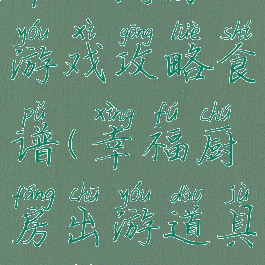 yóu xì gōng lüè shí
游戏攻略食
pǔ xìng fú chú
谱(幸福厨
fáng chū yóu dào jù
房出游道具